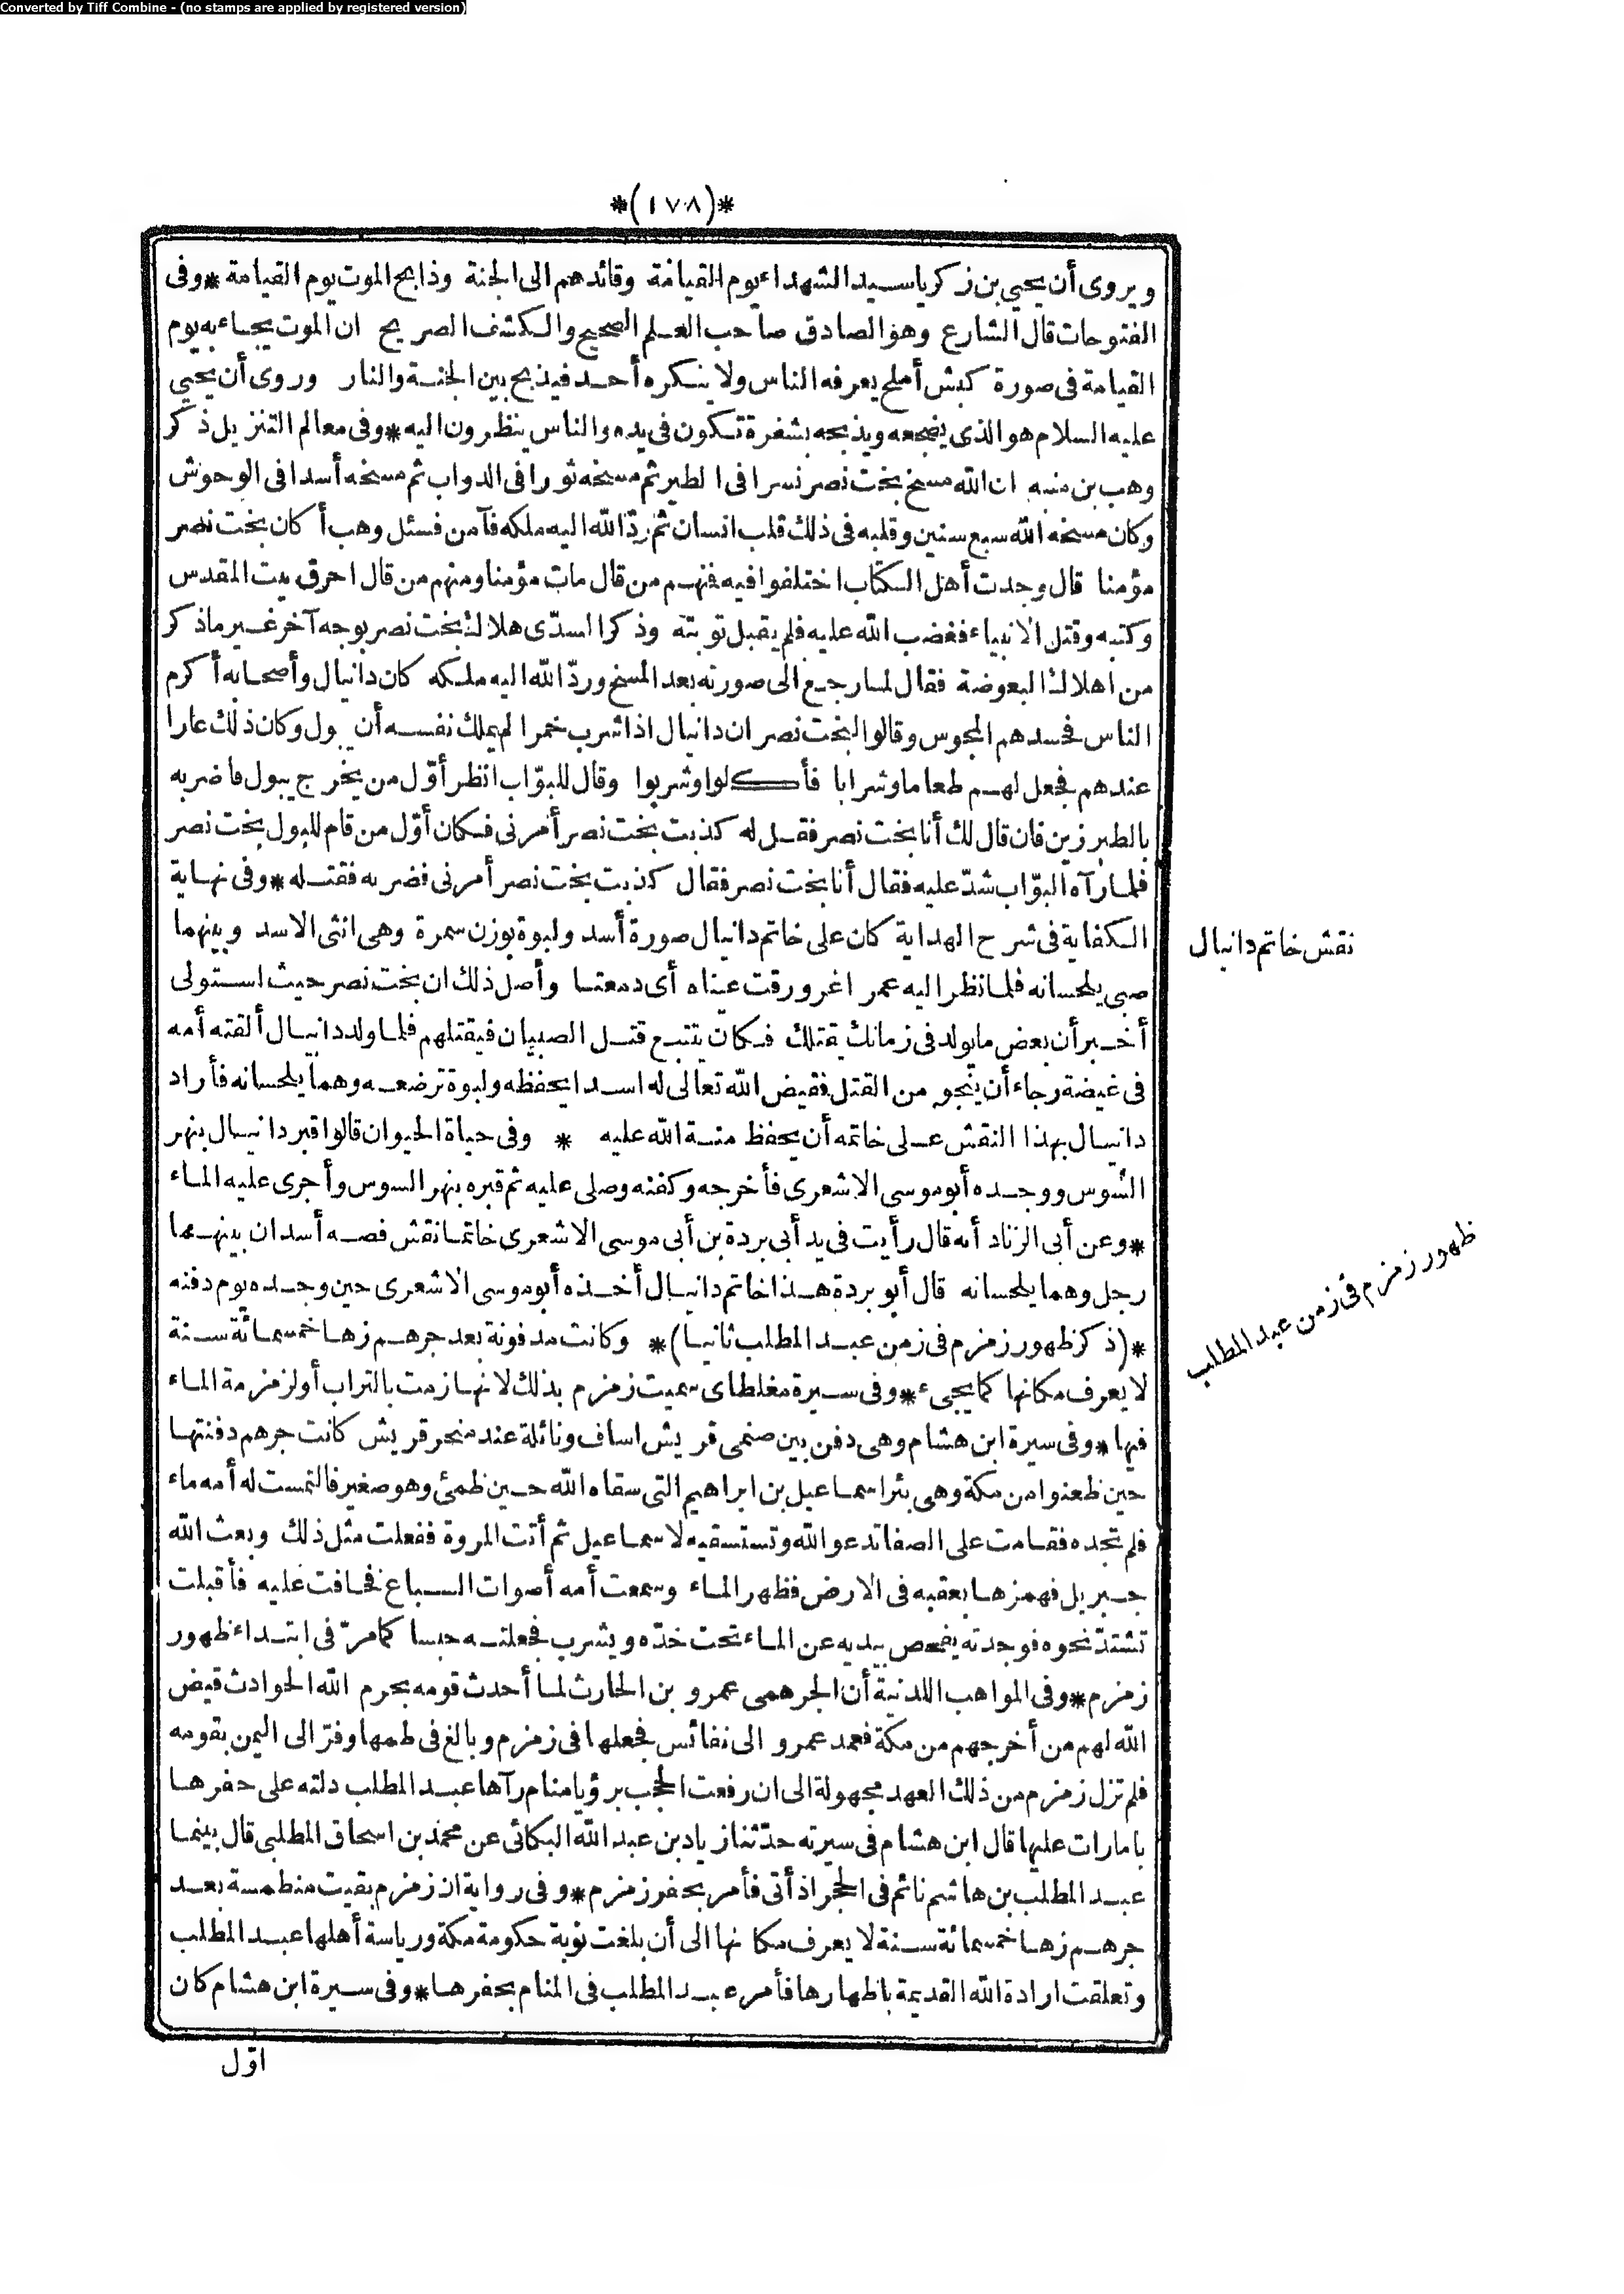 Converted by Tiff Combine - (no stamps are applied by registered version)
*(١٧٨)*
ويروى أن يحيى بن زكريا سيد الشهداء يوم القيامة وقائدهم الى الجنة وذابح الموت يوم القيامة * وفى
الفتوحات قال الشارع وهو الصادق صاحب العلم الصحيح والكشف الصريح ان الموت يجاء به يوم
القيامة فى صورة كبش أملح يعرفه الناس ولا ينكره أحد فيذبح بين الجنة والنار وروى أن يحيى
عليه السلام هو الذى يضجعه ويذبحه بشفرة تكون فى يده والناس ينظرون اليه * وفى معالم التنزيل ذكر
وهب بن منبه ان الله مسخ بخت نصر نسرا فى الطير ثم مسخه ثورا فى الدواب ثم مسخه أسدا فى الوحوش
وكان مسخه الله سبع سنين وقلبه فى ذلك قلب انسان ثم ردّ الله اليه ملكه فآمن فسئل وهب أكان بخت نصر
مؤمنا قال وجدت أهل الكتاب اختلفوا فيه فمنهم من قال مات مؤمنا ومنهم من قال احرق بيت المقدس
وكتبه وقتل الانبياء فغضب الله عليه فلم يقبل توبته وذكر السدّى هلاك بخت نصر بوجه آخر غير ماذكر
من اهلاك البعوضة فقال لما رجع الى صورته بعد المسخ وردّ الله اليه ملكه كان دانيال وأصحابه أكرم
الناس فحسدهم المجوس وقالوا لبخت نصر ان دانيال اذا شرب خمرا لم يملك نفسه أن يبول وكان ذلك عارا
عندهم فجعل لهم طعاما وشرابا فأكلوا وشربوا وقال للبوّاب انظر أوّل من يخرج يبول فاضربه
بالطبرزين فان قال لك أنا بخت نصر فقل له كذبت بخت نصر أمرنى فكان أوّل من قام للبول بخت نصر
فلما رآه البوّاب شدّ عليه فقال أنا بخت نصر فقال كذبت بخت نصر أمرنى فضربه فقتله * وفى نهاية
الكفاية فى شرح الهداية كان على خاتم دانيال صورة أسد ولبوة بوزن سمرة وهى انثى الاسد وبينهما
نقش خاتم دانيال
صبى يلحسانه فلما نظر اليه عمر اغرورقت عيناه أى دمعتا وأصل ذلك ان بخت نصر حيث استولى
أخبر أن بعض ما يولد فى زمانك يقتلك فكان يتتبع قتل الصبيان فيقتلهم فلما ولد دانيال ألقته أمه
فى غيضة رجاء أن ينجو من القتل فقيض الله تعالى له اسدا يحفظه ولبوة ترضعه وهما يلحسانه فأراد
دانيال بهذا النقش على خاتمه أن يحفظ منة الله عليه * وفى حياة الحيوان قالوا قبر دانيال بنهر
السوس ووجده أبو موسى الاشعرى فأخرجه وكفنه وصلى عليه ثم قبره بنهر السوس وأجرى عليه الماء
* وعن أبى الزناد أنه قال رأيت فى يد أبى بردة بن أبى موسى الاشعرى خاتما نقش فصه أسدان بينهما
رجل وهما يلحسانه قال أبو بردة هذا خاتم دانيال أخذه أبو موسى الاشعرى حين وجده يوم دفنه
*(ذكر ظهور زمزم فى زمن عبد المطلب ثانيا)* وكانت مدفونة بعد جرهم زهاء خمسمائة سنة
ظهور زمزم فى زمن عبد المطلب
لا يعرف مكانها كما يجىء * وفى سيرة مغلطاى سميت زمزم بذلك لانها زمت بالتراب أولزمزمة الماء
فيها * وفى سيرة ابن هشام وهى دفن بين صنمى قريش اساف ونائلة عند منحر قريش كانت جرهم دفنتها
حين ظعنوا من مكة وهى بئر اسماعيل بن ابراهيم التى سقاه الله حين ظمئ وهو صغير فالتمست له أمه ماء
فلم تجده فقامت على الصفا تدعو الله وتستسقيه لاسماعيل ثم أتت المروة ففعلت مثل ذلك وبعث الله
جبريل فهمزها بعقبه فى الارض فظهر الماء وسمعت أمه أصوات السباع فخافت عليه فأقبلت
تشتدّ نحوه فوجدته يفحص بيديه عن الماء تحت خدّه ويشرب فجعلته حبسا كما مرّ فى ابتداء ظهور
زمزم * وفى المواهب اللدنية أن الجرهمى عمرو بن الحارث لما أحدث قومه بحرم الله الحوادث قيض
الله لهم من أخرجهم من مكة فعمد عمرو الى نفائس فجعلها فى زمزم وبالغ فى طمها وفرّ الى اليمن بقومه
فلم تزل زمزم من ذلك العهد مجهولة الى ان رفعت الحجب برؤيا منام رآها عبد المطلب دلته على حفرها
بامارات عليها قال ابن هشام فى سيرته حدّثنا زياد بن عبد الله البكائى عن محمد بن اسحاق المطلبى قال بينما
عبد المطلب بن هاشم نائم فى الحجر اذ أتى فأمر بحفر زمزم * وفى رواية ان زمزم بقيت منطمسة بعد
جرهم زهاء خمسمائة سنة لا يعرف مكانها الى أن بلغت نوبة حكومة مكة ورياسة أهلها عبد المطلب
وتعلقت ارادة الله القديمة باظهارها فأمر عبد المطلب فى المنام بحفرها * وفى سيرة ابن هشام كان
اوّل